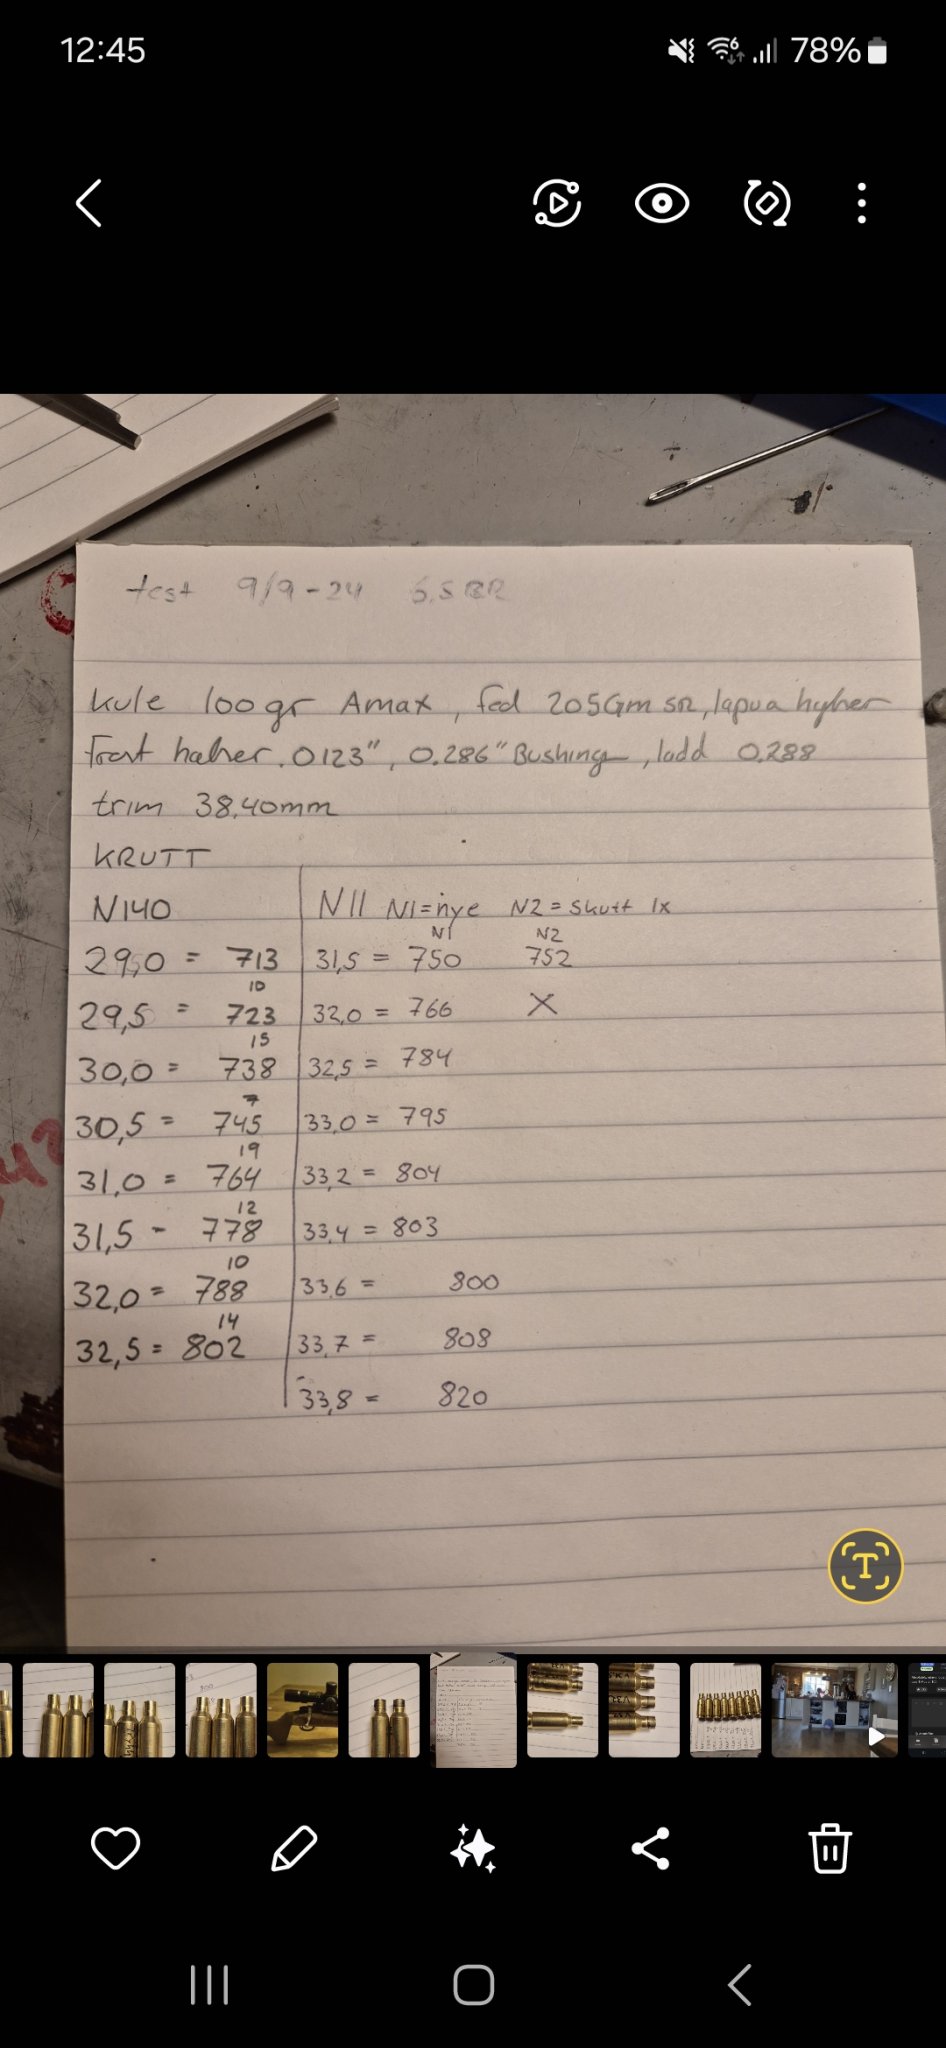 12:45
6
78%
test 9/9-24 6,5 BR
kule 100gr Amax, fed 205Gm SR, lapua hylser
Frest halser .0123", 0.286" Bushing, ladd 0.288
trim 38,40mm
KRUTT
N140
29,0 = 713
10
29,5 = 723
15
30,0 = 738
7
30,5 = 745
19
31,0 = 764
12
31,5 - 778
10
32,0 = 788
14
32,5 = 802
N11 N1=nye N2=skutt 1x
N1 N2
31,5 = 750 752
32,0 = 766 X
32,5 = 784
33,0 = 795
33,2 = 804
33,4 = 803
33,6 = 800
33,7 = 808
33,8 = 820
T